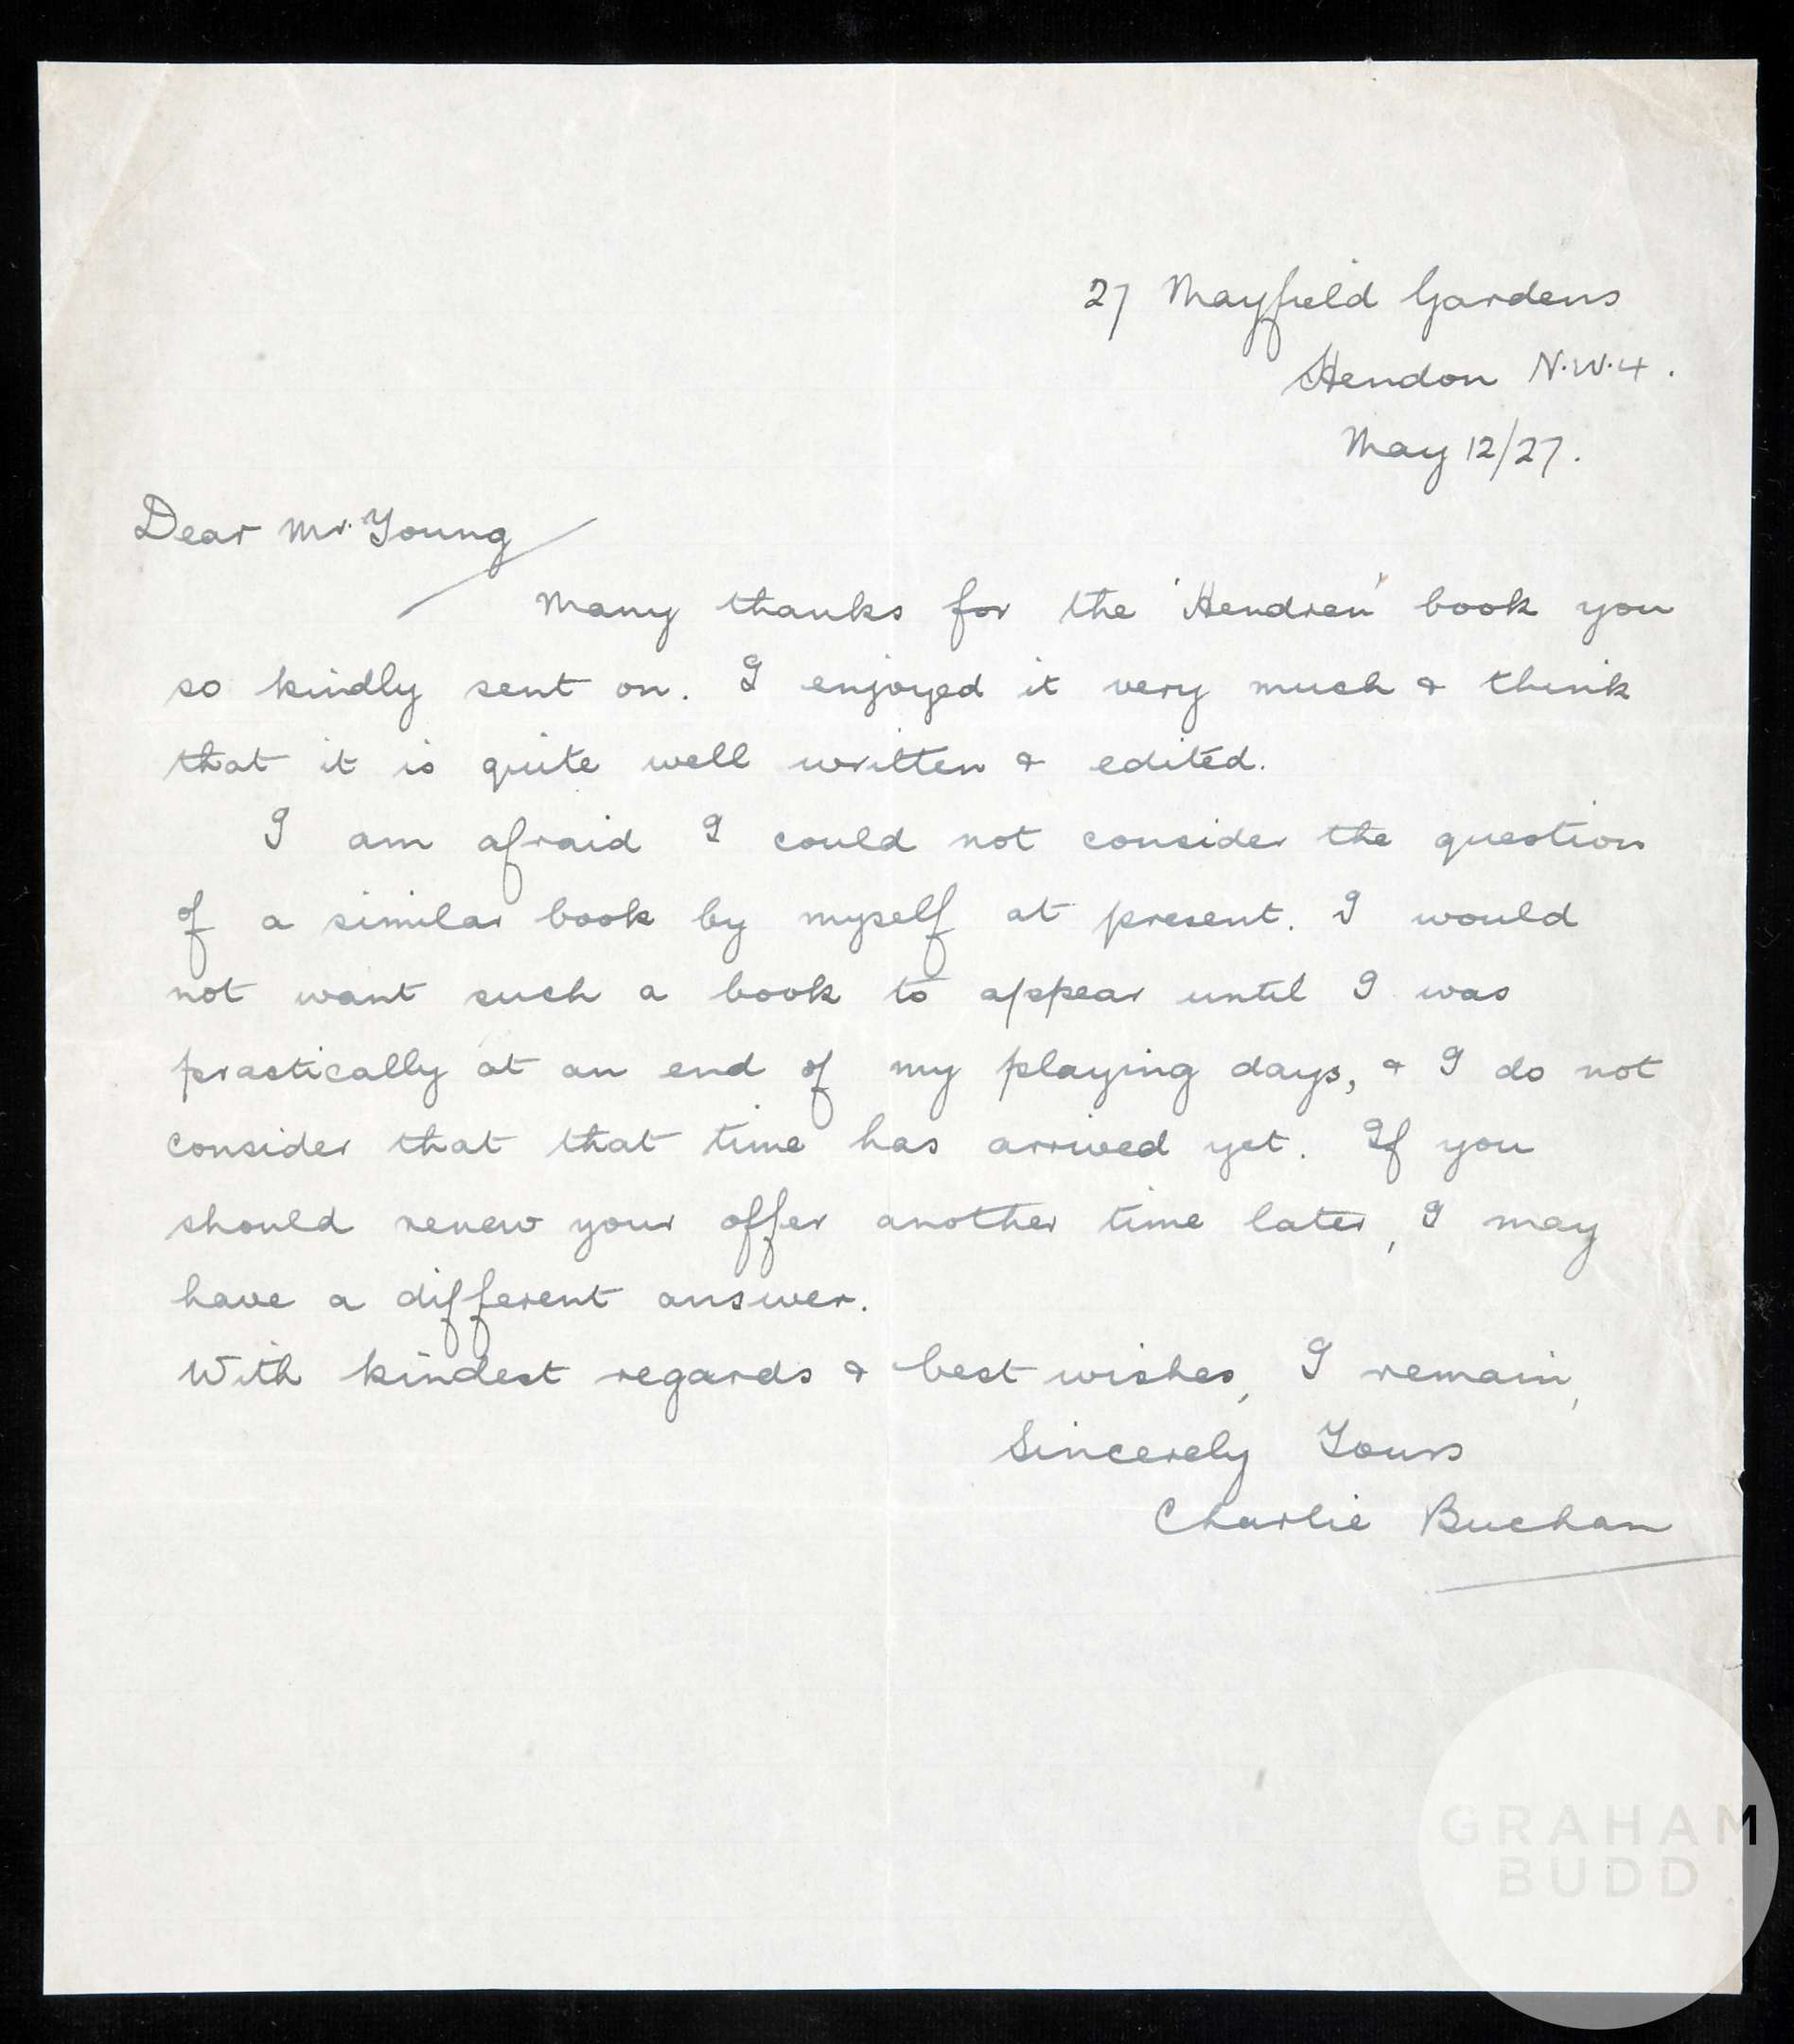 27 Mayfield Gardens
Hendon N.W.4.
May 12/27.
Dear Mr. Young
Many thanks for the 'Hendren' book you
so kindly sent on. I enjoyed it very much & think
that it is quite well written & edited.
I am afraid I could not consider the question
of a similar book by myself at present. I would
not want such a book to appear until I was
practically at an end of my playing days, & I do not
consider that that time has arrived yet. If you
should renew your offer another time later, I may
have a different answer.
With kindest regards & best wishes, I remain,
Sincerely Yours
Charlie Buchan
GRAHAM
BUDD